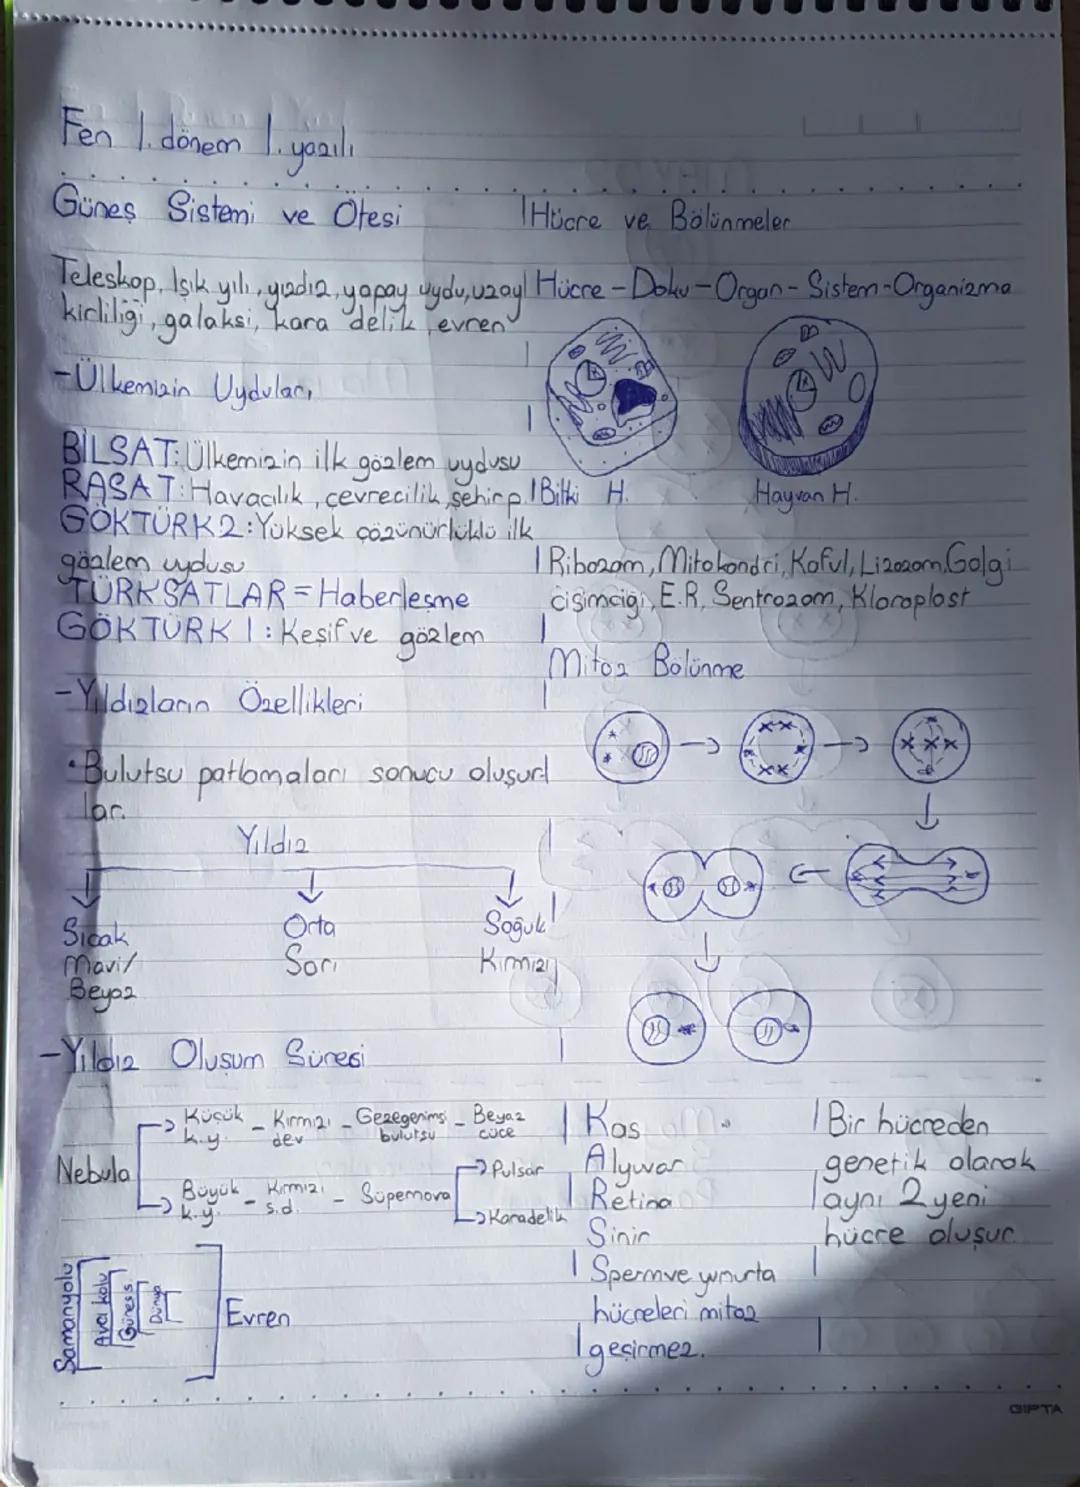 Fen 1. dönem 1. yazılı
Güneş Sistemi ve Ötesi
Teleskop, Işık yılı, yıldız, yapay uydu, uzay
kirliliği, galaksi, kara delik, evren
-Ülkemizin Uyduları
BİLSAT: Ülkemizin ilk gözlem uydusu
RASAT: Havacılık, çevrecilik, şehir p.
GÖKTÜRK 2: Yüksek çözünürlüklü ilk
gözlem uydusu
TÜRKSATLAR = Haberleşme
GÖKTÜRK 1: Keşif ve gözlem
-Yıldızların Özellikleri
• Bulutsu patlamaları sonucu oluşur
lar.
Yıldız
Sıcak
Mavi/
Beyaz
Orta
Sarı
Soğuk
Kırmızı
-Yıldız Oluşum Süresi
Nebula
Küçük k.y. - Kırmızı dev - Gezegenimsi bulutsu - Beyaz cüce
Büyük k.y. - Kırmızı s.d. - Süpernova
Pulsar
Karadelik
Samanyolu
Avcı kolu
Güneş s
Dünya
Evren
Hücre ve Bölünmeler
Hücre - Doku - Organ - Sistem - Organizma
Bitki H.
Hayvan H.
Ribozom, Mitokondri, Koful, Lizozom, Golgi
cisimciği, E.R, Sentrozom, Kloroplost
Mitoz Bölünme
Kas
Alyuvar
Retina
Sinir
Sperm ve yumurta
hücreleri mitoz
geçirmez.
Bir hücreden
genetik olarak
aynı 2 yeni
hücre oluşur.
GIPTA